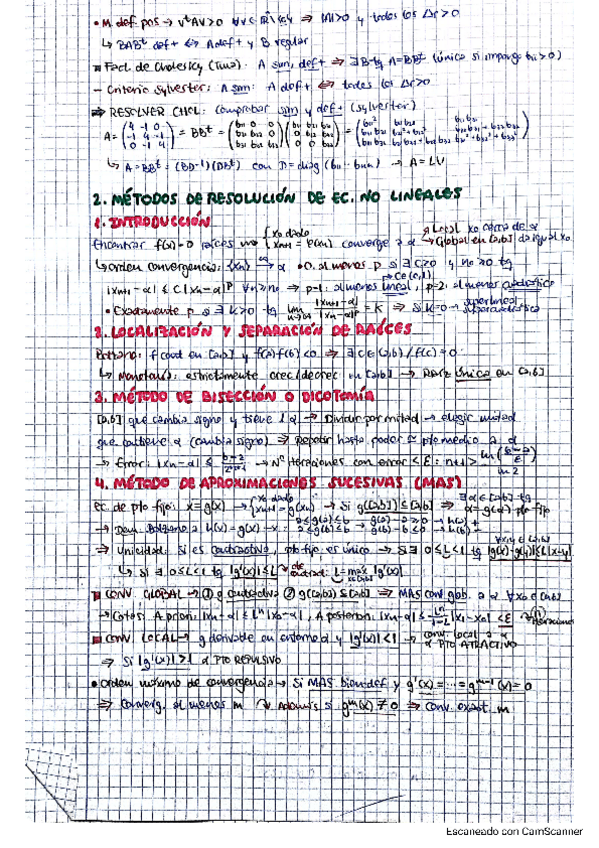 • M. def. pos → vᵗAv>0 ∀v∈ℝⁿ\{0} ⇒ |A|>0 y todos los Δr>0
↳ BABᵗ def+ ⇔ A def+ y B regular
▪ Fact. de Cholesky (Tma): A sim, def+ ⇔ ∃B tq A=BBᵗ (única si impongo bii>0)
– Criterio Sylvester: A sim: A def+ ⇔ todos los Δr>0
⇒ RESOLVER CHOL: comprobar sim y def+ (sylvester)
A = (4 -1 0 / -1 4 -1 / 0 -1 4) = BBᵗ =
↳ A=BBᵗ=(BD⁻¹)(DBᵗ) con D=diag(b11…bnn) → A=LU
2. MÉTODOS DE RESOLUCIÓN DE EC. NO LINEALES
1. INTRODUCCIÓN
Encontrar f(x)=0 raíces {x0 dado / xn+1=φ(xn) converge a α → Local x0 cerca de α → Global en [a,b] da igual x0
↳ Orden convergencia: {xn} → α • O. al menos p si ∃ C≥0 y n0≥0 tq
|xn+1-α| ≤ C|xn-α|ᵖ ∀n≥n0 → p=1: al menos lineal, C∈(0,1) p=2: al menos cuadrático
• Exactamente p si ∃ K>0 tq lim n→∞ |xn+1-α| / |xn-α|ᵖ = K → Si K=0 → superlineal supercuadrático
2. LOCALIZACIÓN Y SEPARACIÓN DE RAÍCES
Bolzano: f cont en [a,b] y f(a)f(b)<0 ⇒ ∃ c∈(a,b) / f(c)=0
↳ Monotonía: estrictamente crec/decrec en [a,b] → Raíz única en [a,b]
3. MÉTODO DE BISECCIÓN O DICOTOMÍA
[a,b] que cambia signo y tiene 1 α → Dividir por mitad → elegir mitad
que contiene α (cambia signo) ⇒ Repetir hasta poder ≅ pto medio a α
→ Error: |xn-α| ≤ b-a / 2ⁿ⁺¹ → Nº iteraciones con error < ε: n+1 > ln((b-a)/ε) / ln 2
4. MÉTODO DE APROXIMACIONES SUCESIVAS (MAS)
Ec. de pto fijo: x=g(x) → {x0 dado / xn+1=g(xn) → Si g([a,b])⊆[a,b] ⇒ ∃α∈[a,b] tq α=g(α) pto fijo
→ Dem. Bolzano a h(x)=g(x)-x: a≤g(a)≤b → g(a)-a≥0 → h(a)+ / a≤g(b)≤b → g(b)-b≤0 → h(b)-
⇒ Unicidad: Si es contractiva, pto fijo es único → Si ∃ 0≤L<1 tq |g(x)-g(y)|≤L|x-y| ∀x,y∈[a,b]
↳ Si ∃ 0≤L<1 tq |g'(x)|≤L → cte contract: L=max |g'(x)| x∈[a,b]
▪ CONV. GLOBAL → ① g contractiva ② g([a,b])⊆[a,b] ⇒ MAS conv glob. a α ∀x0∈[a,b]
→ Cotas: A priori: |xn-α|≤Lⁿ|x0-α|, A posteriori: |xn-α|≤ Lⁿ/1-L |x1-x0| < ε → (n) iteraciones
▪ CONV. LOCAL → g derivable en entorno α y |g'(α)|<1 → conv. local a α α PTO ATRACTIVO
⇒ Si |g'(α)|>1 α PTO REPULSIVO
• Orden máximo de convergencia → Si MAS bien def y g'(α)=…=gᵐ⁻¹(α)=0
⇒ Converg. al menos m ↘ Además si gᵐ(α)≠0 ⇒ conv. exact. m
Escaneado con CamScanner